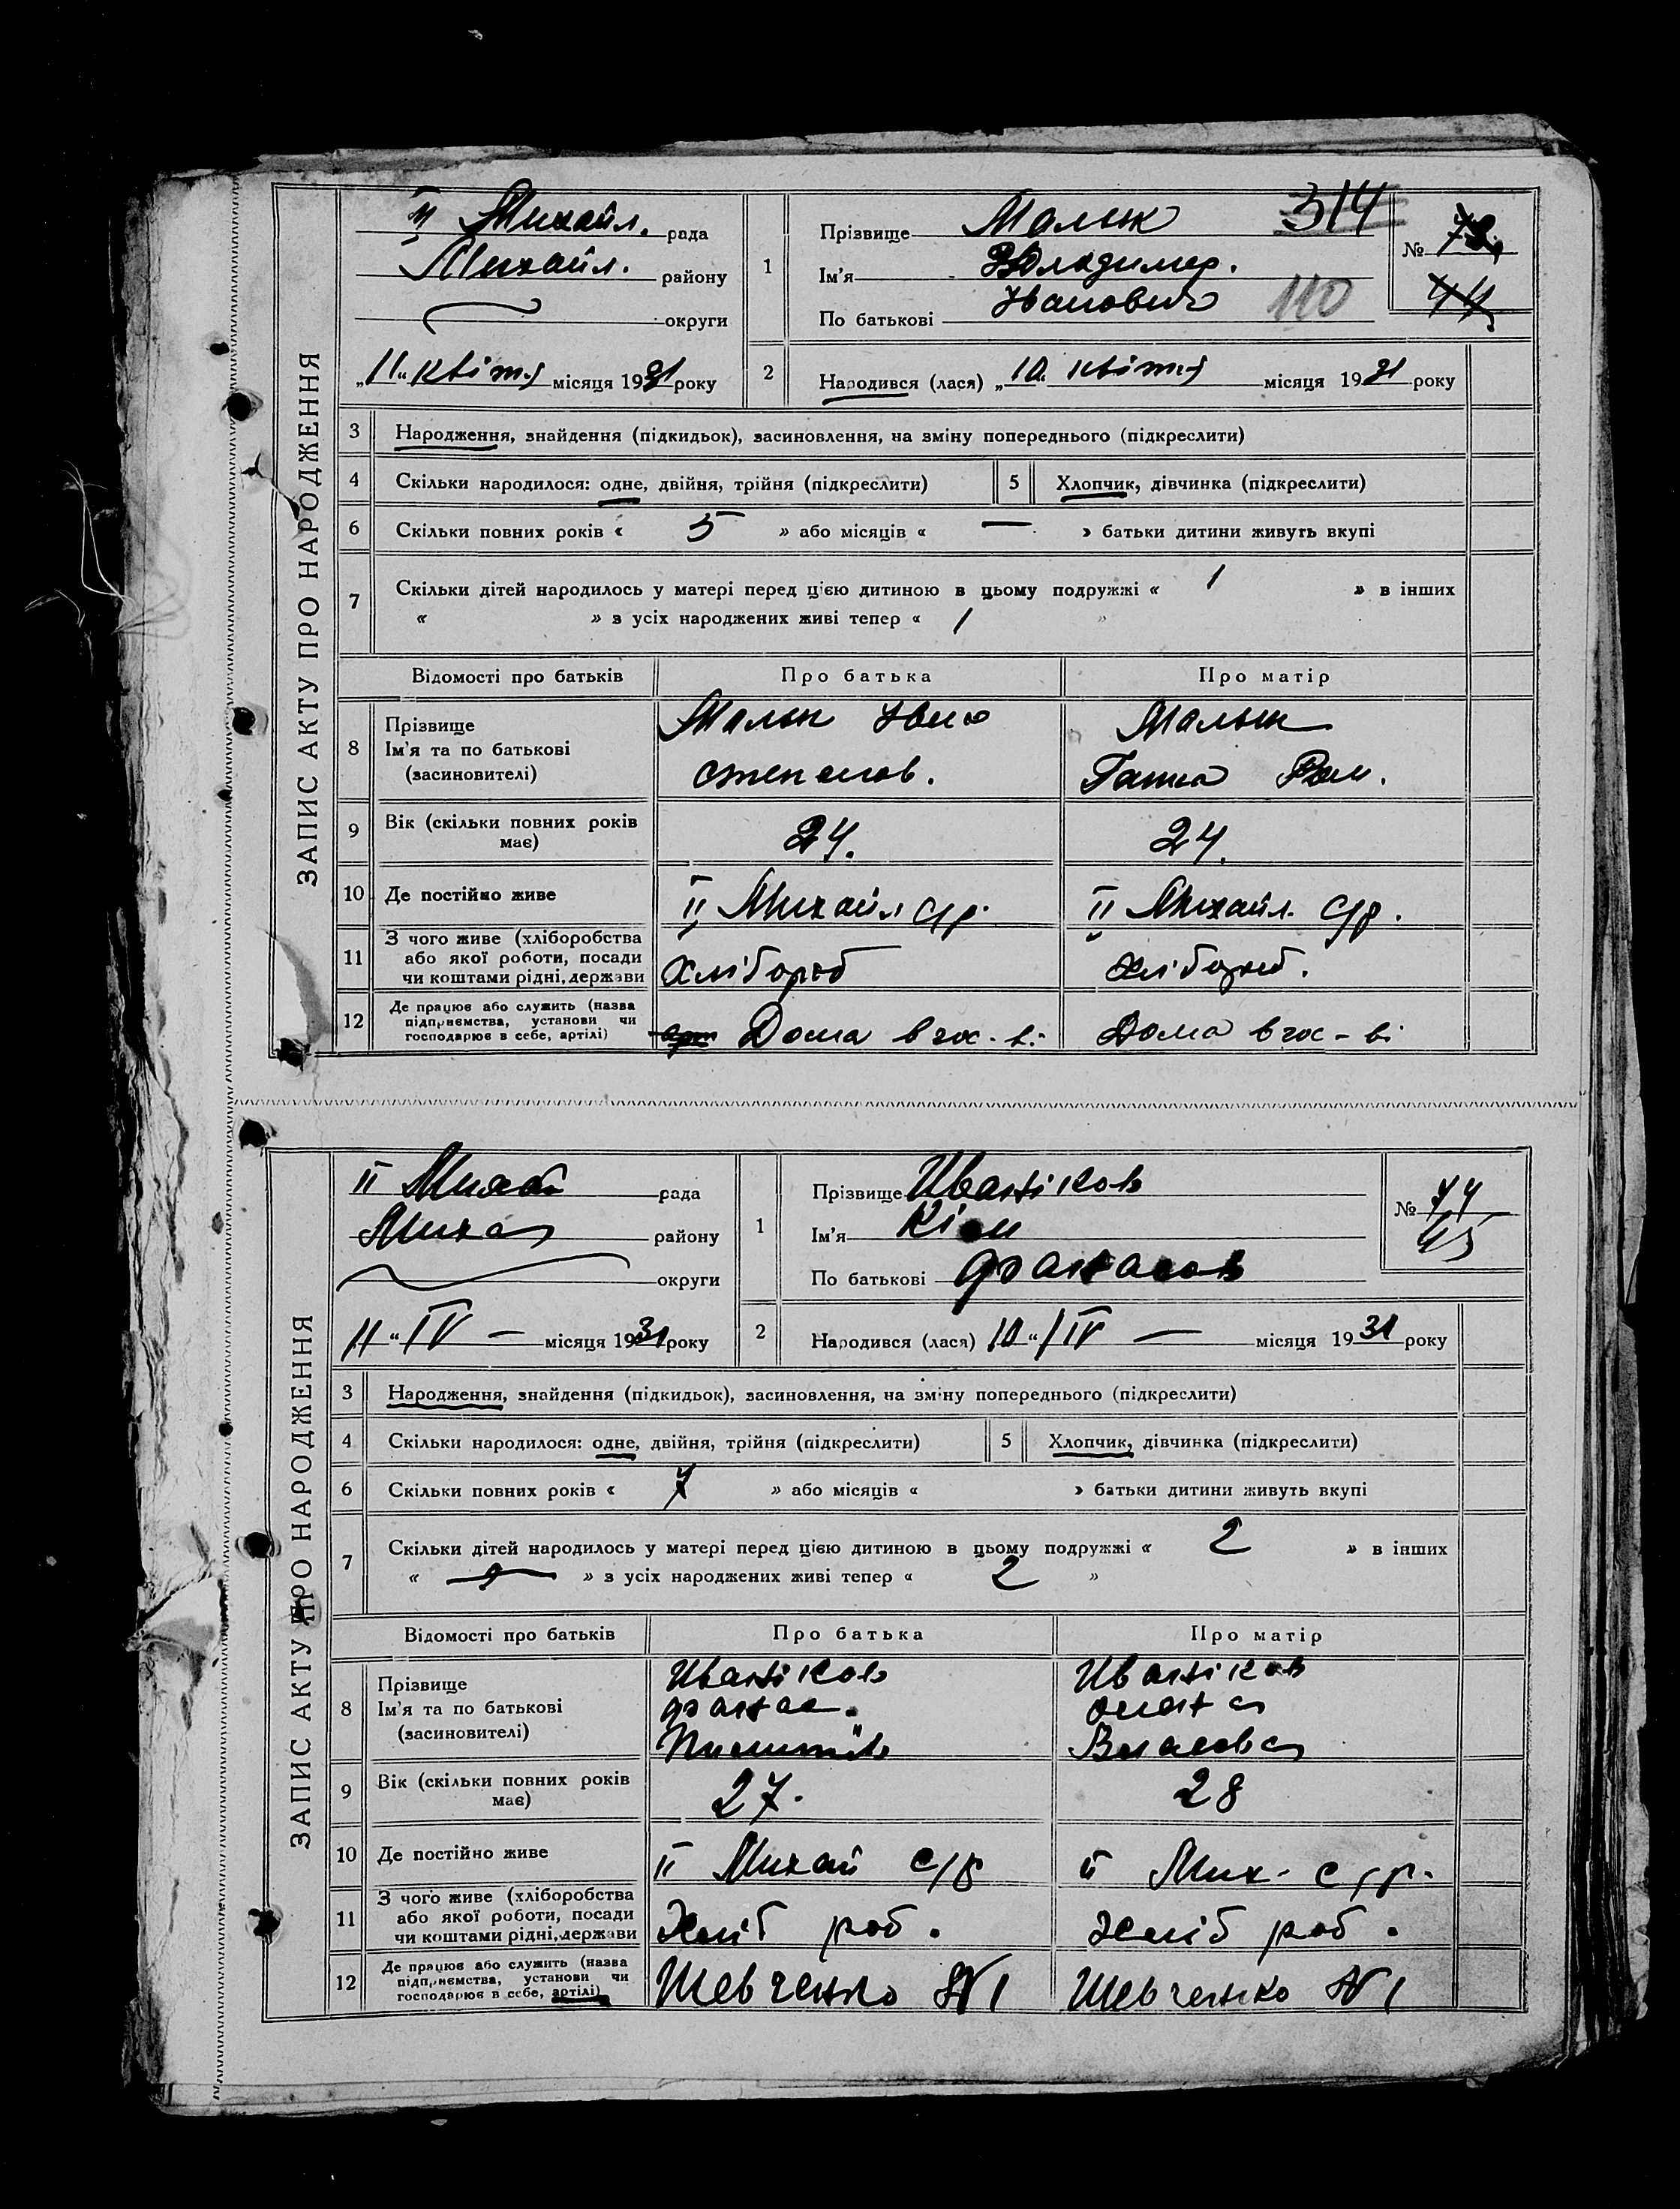 ЗАПИС АКТУ ПРО НАРОДЖЕННЯ
II Михайл. рада
Михайл. району
округи
„11“ квітня місяця 1931 року
1
Прізвище Малик 314
Ім'я Владимер.
По батькові Іванович 110
№ 73
44
2
Народився (лася) „10“ квітня місяця 1931 року
3 Народження, знайдення (підкидьок), засиновлення, на зміну попереднього (підкреслити)
4 Скільки народилося: одне, двійня, трійня (підкреслити)
5 Хлопчик, дівчинка (підкреслити)
6 Скільки повних років « 5 » або місяців « — » батьки дитини живуть вкупі
7 Скільки дітей народилось у матері перед цією дитиною в цьому подружжі « 1 » в інших
« » з усіх народжених живі тепер « 1 »
Відомості про батьків Про батька Про матір
8 Прізвище
Ім'я та по батькові
(засиновителі)
Малик Іван
степанов.
Малик
Ганна Ром.
9 Вік (скільки повних років має) 24. 24.
10 Де постійно живе II Михайл с/р. II Михайл. с/р.
11 З чого живе (хліборобства
або якої роботи, посади
чи коштами рідні, держави
Хлібороб хлібороб.
12 Де працює або служить (назва
підприємства, установи чи
господарює в себе, артілі)
Дома в гос-ві Дома в гос-ві
ЗАПИС АКТУ ПРО НАРОДЖЕННЯ
II Михай рада
Миха району
округи
11 “ IV — місяця 1931 року
1
Прізвище Иваніков
Ім'я Кім
По батькові Фанасов
№ 74
45
2
Народився (лася) 10 “ IV — місяця 1931 року
3 Народження, знайдення (підкидьок), засиновлення, на зміну попереднього (підкреслити)
4 Скільки народилося: одне, двійня, трійня (підкреслити)
5 Хлопчик, дівчинка (підкреслити)
6 Скільки повних років « 7 » або місяців « » батьки дитини живуть вкупі
7 Скільки дітей народилось у матері перед цією дитиною в цьому подружжі « 2 » в інших
« — » з усіх народжених живі тепер « 2 »
Відомості про батьків Про батька Про матір
8 Прізвище
Ім'я та по батькові
(засиновителі)
Иваніков
Фанас.
Иваніков
Власова
9 Вік (скільки повних років має) 27. 28
10 Де постійно живе II Михай с/р II Мих. с/р.
11 З чого живе (хліборобства
або якої роботи, посади
чи коштами рідні, держави
Хліб роб. Хліб роб.
12 Де працює або служить (назва
підприємства, установи чи
господарює в себе, артілі)
Шевченко №1 Шевченко №1